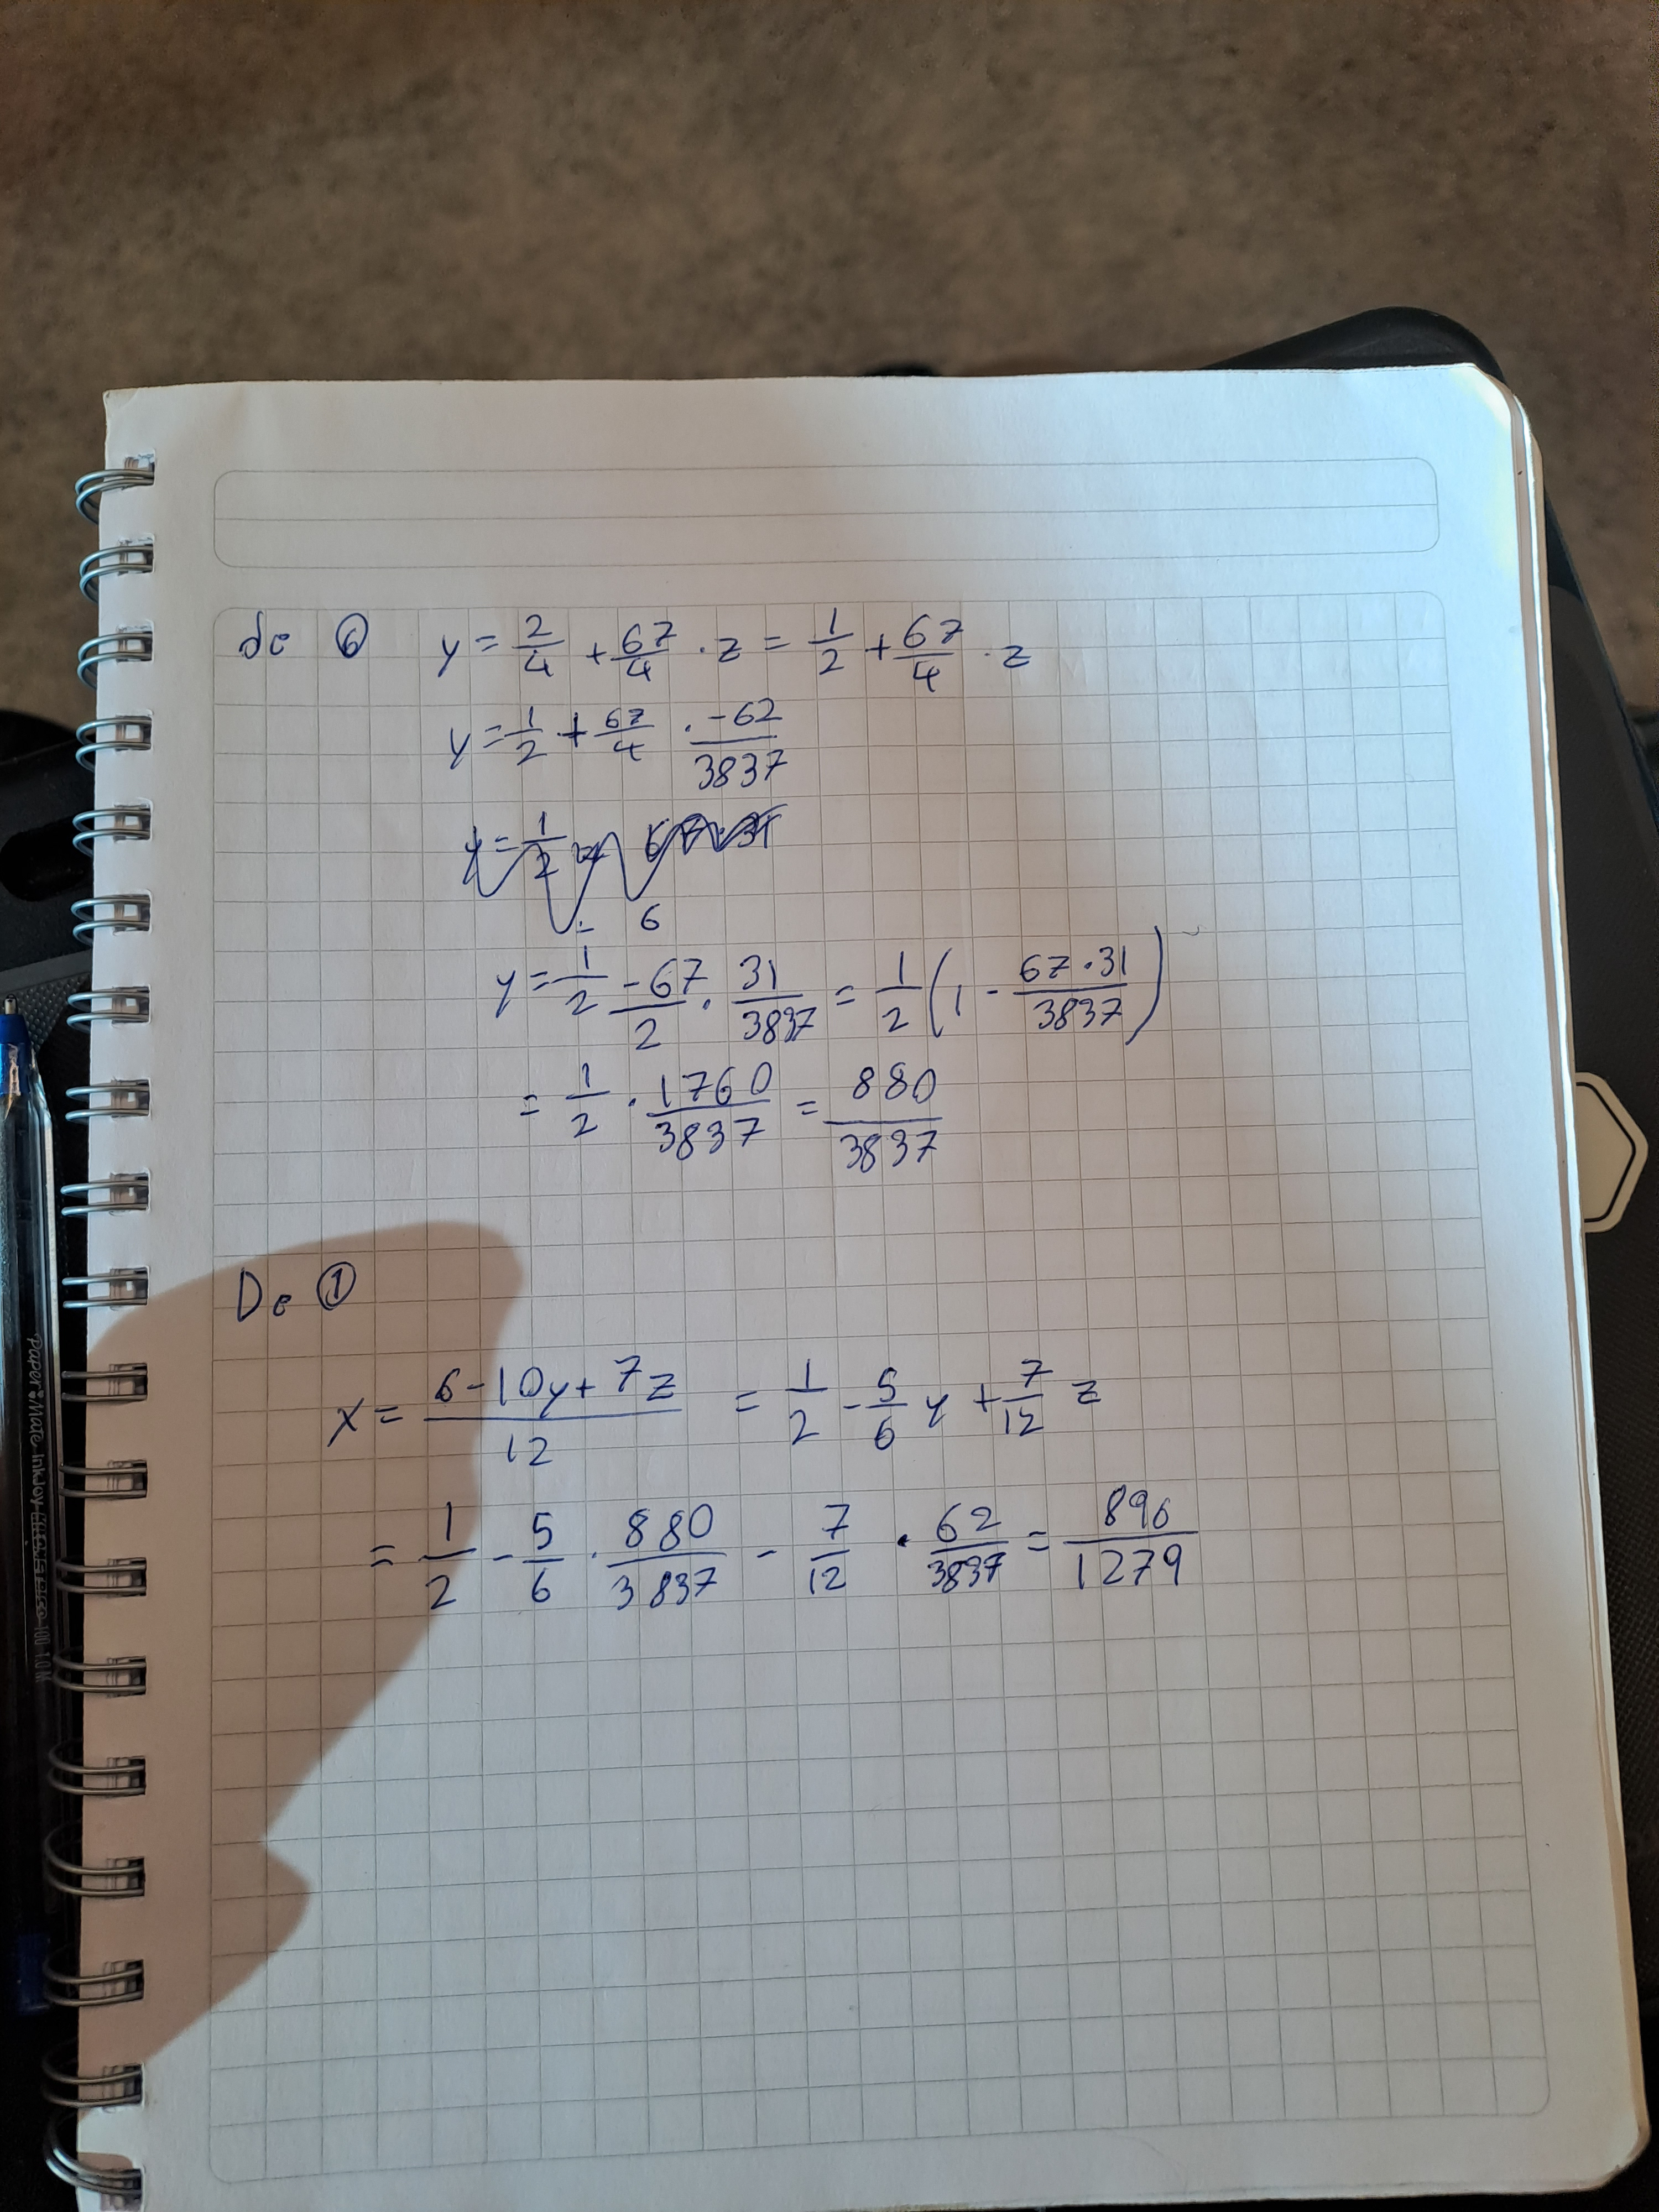 de ⑥ y = 2/4 + 67/4 · z = 1/2 + 67/4 · z
y = 1/2 + 67/4 · -62/3837
6
y = 1/2 - 67/2 · 31/3837 = 1/2 (1 - 67·31/3837)
= 1/2 · 1760/3837 = 880/3837
De ①
x = 6-10y+7z/12 = 1/2 - 5/6 y + 7/12 z
= 1/2 - 5/6 · 880/3837 - 7/12 · 62/3837 = 896/1279
Paper Mate InkJoy 100 1.0 M